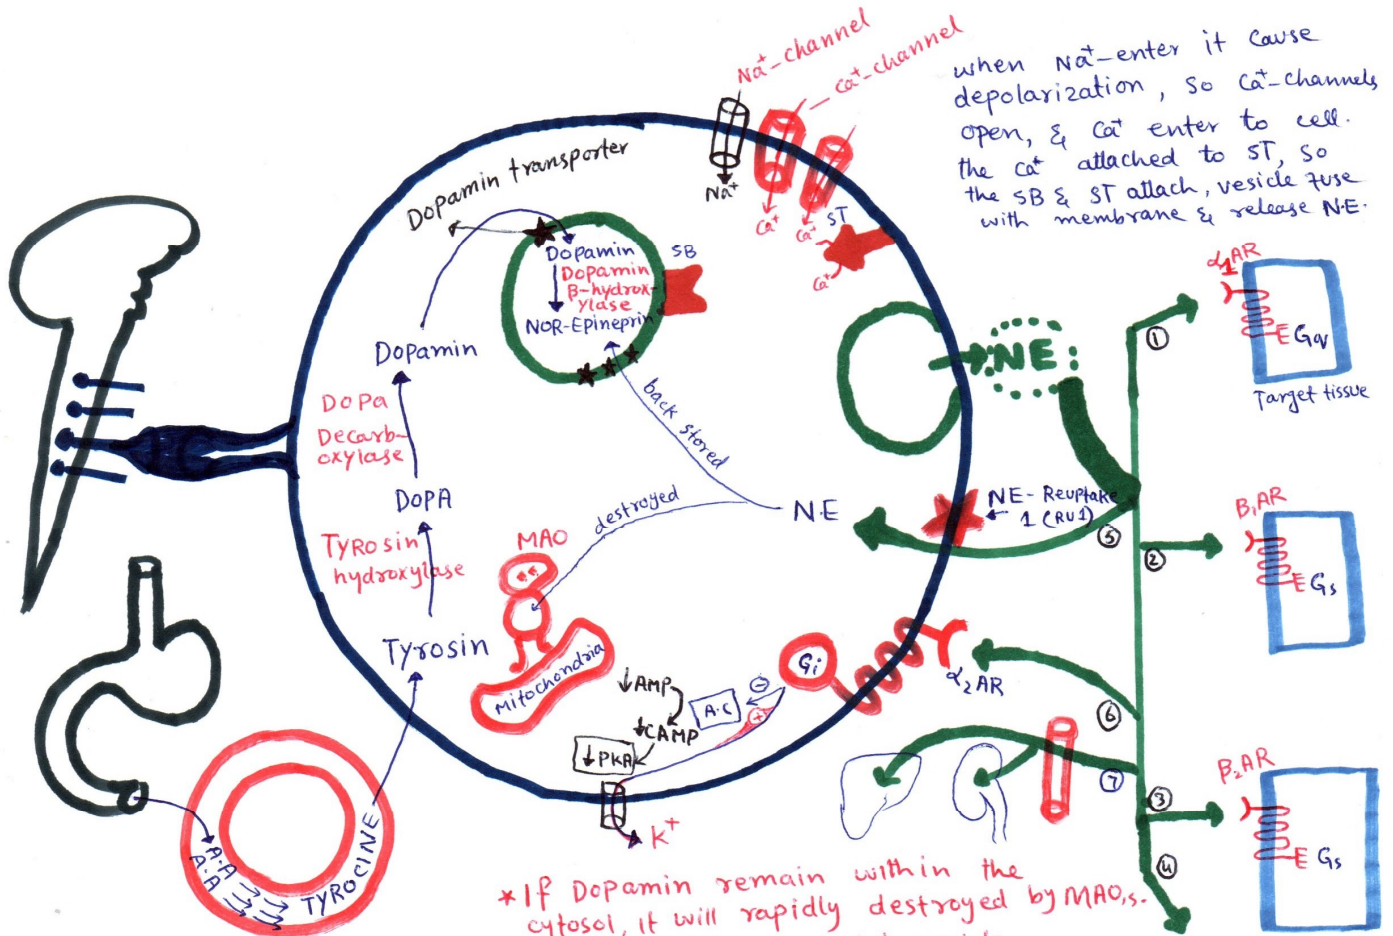 Na⁺-channel
Ca⁺-channel
when Na⁺-enter it cause
depolarization, so Ca⁺-channels
open, & Ca⁺ enter to cell.
the Ca⁺ attached to ST, so
the SB & ST attach, vesicle fuse
with membrane & release N.E.
Dopamin transporter
Na⁺
Ca⁺
Ca⁺
ST
Ca⁺
SB
Dopamin
Dopamin
β-hydrox-
ylase
NOR-Epineprin
Dopamin
Dopa
Decarb-
oxylase
DOPA
Tyrosin
hydroxylase
Tyrosin
back stored
destroyed
N.E
MAO
Mitochondria
NE
NE-Reuptake
1 (RU1)
α1AR
Gq
Target tissue
1
5
2
β1AR
Gs
Gi
α2AR
6
7
3
4
β2AR
Gs
↓AMP
↓cAMP
A.C
↓PKA
K⁺
A.A
A.A
TYROCINE
*If Dopamin remain within the
cytosol, it will rapidly destroyed by MAO,s.